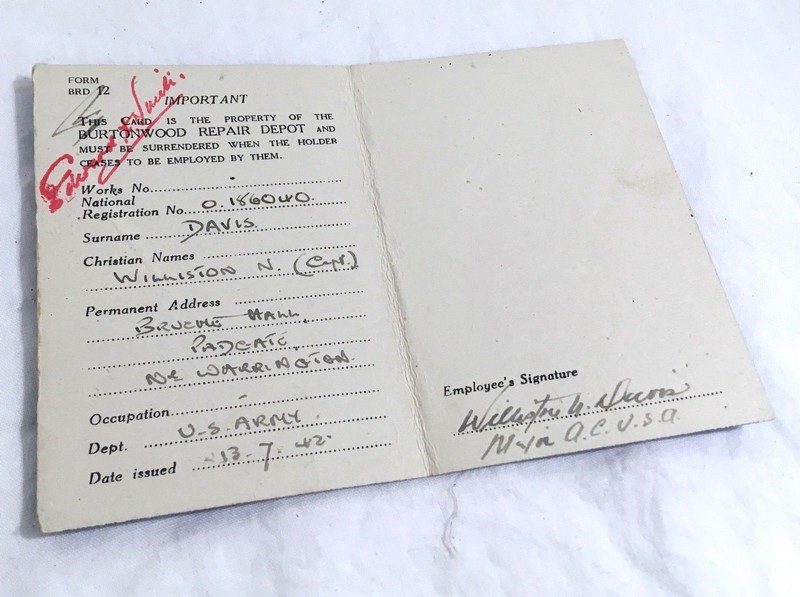 FORM
BRD 12
IMPORTANT
THIS CARD IS THE PROPERTY OF THE
BURTONWOOD REPAIR DEPOT AND
MUST BE SURRENDERED WHEN THE HOLDER
CEASES TO BE EMPLOYED BY THEM.
Works No.
National
Registration No. O.186040.
Surname DAVIS.
Christian Names
WILLISTON N. (Capt.)
Permanent Address
BRUCHE HALL,
PADGATE,
NR WARRINGTON.
Occupation
Dept. U.S. ARMY.
Date issued 13.7.42.
Employee's Signature
Williston N. Davis
Major A.C. U.S.A.